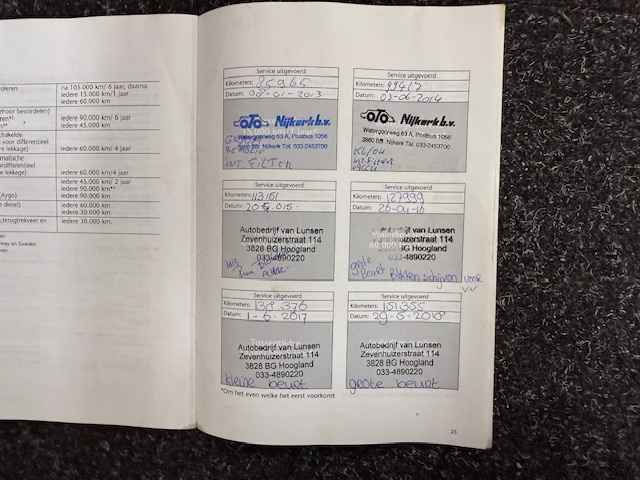 na 105.000 km/ 6 jaar, daarna
iedere 15.000 km/1 jaar
iedere 60.000 km
iedere 90.000 km/ 6 jaar
iedere 45.000 km
iedere 60.000 km/ 4 jaar
iedere 60.000 km/4 jaar
iedere 45.000 km/ 2 jaar
iedere 90.000 km
iedere 90.000 km
iedere 60.000 km
iedere 30.000 km
iedere 30.000 km
Service uitgevoerd
Kilometers: 85965
Datum: 08-01-2013
OTO Nijkerk b.v.
Watergoorweg 63 A, Postbus 1056
3860 BB Nijkerk Tel. 033-2453700
Int. FILTER
Service uitgevoerd
Kilometers: 99417
Datum: 03-06-2014
OTO Nijkerk b.v.
Watergoorweg 63 A, Postbus 1056
3860 BB Nijkerk Tel. 033-2453700
Service uitgevoerd
Kilometers: 113161
Datum:
Autobedrijf van Lunsen
Zevenhuizerstraat 114
3828 BG Hoogland
033-4890220
Service uitgevoerd
Kilometers: 127999
Datum: 26-04-16
Autobedrijf van Lunsen
Zevenhuizerstraat 114
3828 BG Hoogland
033-4890220
grote
beurt Blokken schijven voor
Service uitgevoerd
Kilometers: 139 376
Datum: 1-6-2017
Autobedrijf van Lunsen
Zevenhuizerstraat 114
3828 BG Hoogland
033-4890220
kleine beurt
Service uitgevoerd
Kilometers: 151355
Datum: 29-6-2018
Autobedrijf van Lunsen
Zevenhuizerstraat 114
3828 BG Hoogland
033-4890220
grote beurt
*Om het even welke het eerst voorkomt
25